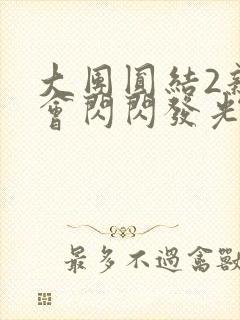 大團圓結2
會閃閃發光
最多不過禽獸